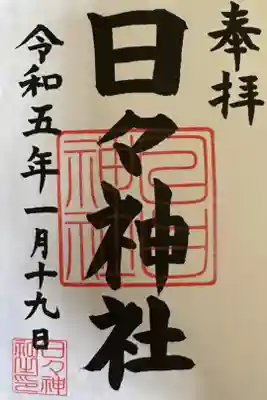 奉拝
日々神社
令和五年一月十九日
日々神社
日々神社之印